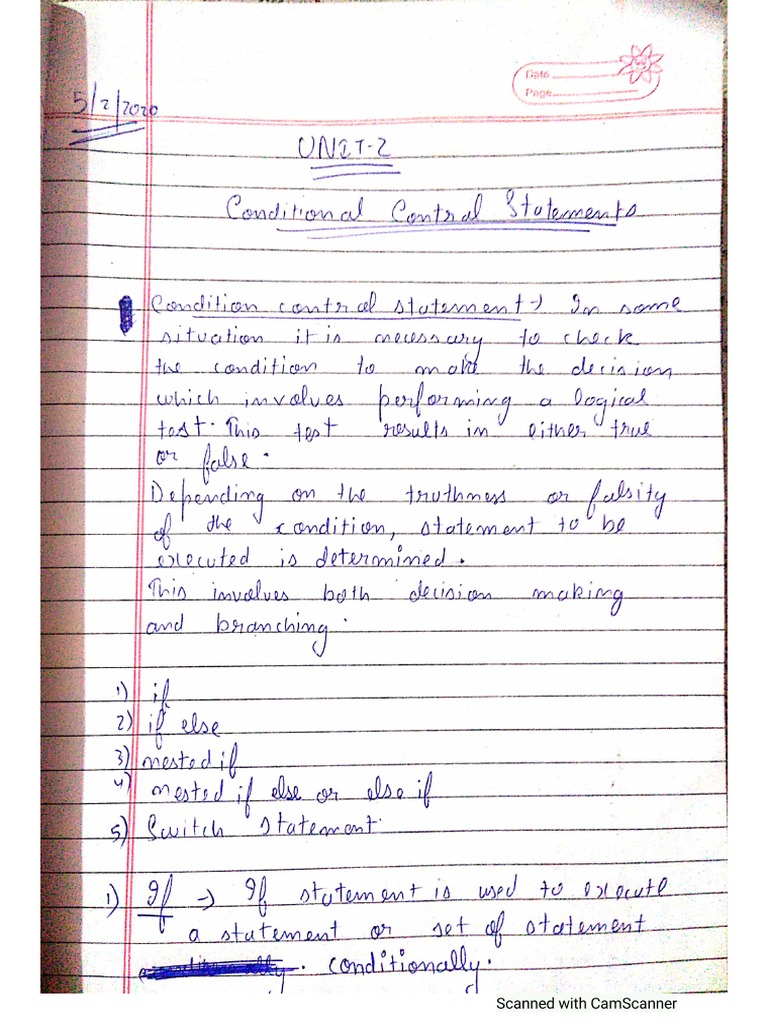 Date
Page
5/2/2020
UNIT-2
Conditional Control Statements
Condition control statement → In some
situation it is necessary to check
the condition to make the decision
which involves performing a logical
test. This test results in either true
or false.
Depending on the truthness or falsity
of the condition, statement to be
executed is determined.
This involves both decision making
and branching.
1) if
2) if else
3) nested if
4) nested if else or else if
5) Switch statement.
1) If → If statement is used to execute
a statement or set of statement
conditionally.
Scanned with CamScanner